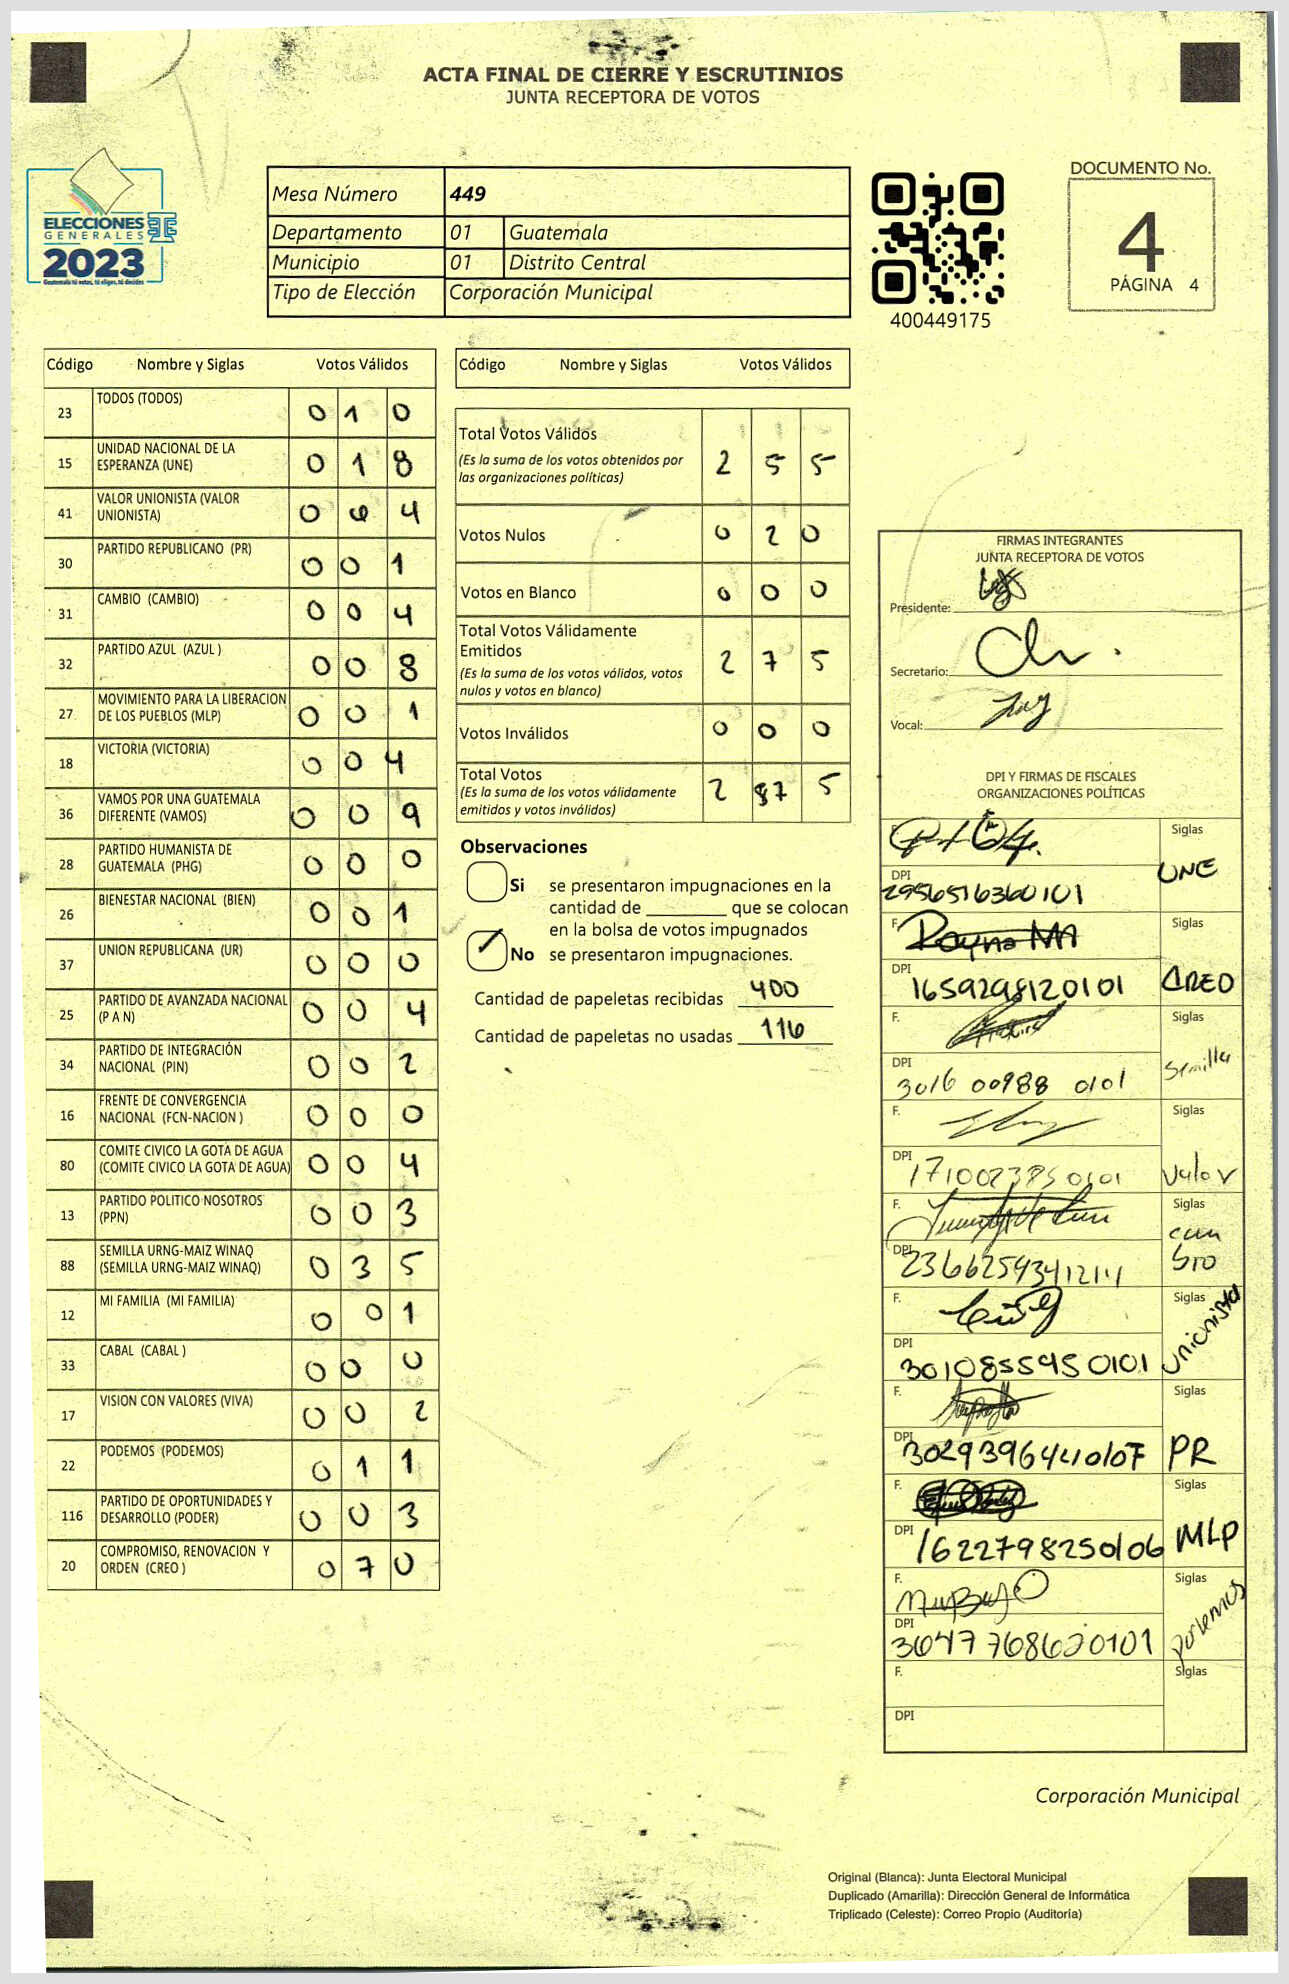 ACTA FINAL DE CIERRE Y ESCRUTINIOS
JUNTA RECEPTORA DE VOTOS
ELECCIONES
GENERALES
2023
Guatemala: tú votas, tú eliges, tú decides
Mesa Número 449
Departamento 01 Guatemala
Municipio 01 Distrito Central
Tipo de Elección Corporación Municipal
400449175
DOCUMENTO No.
4
PÁGINA 4
Código Nombre y Siglas Votos Válidos
23 TODOS (TODOS) 0 1 0
15 UNIDAD NACIONAL DE LA
ESPERANZA (UNE) 0 1 8
41 VALOR UNIONISTA (VALOR
UNIONISTA) 0 6 4
30 PARTIDO REPUBLICANO (PR) 0 0 1
31 CAMBIO (CAMBIO) 0 0 4
32 PARTIDO AZUL (AZUL ) 0 0 8
27 MOVIMIENTO PARA LA LIBERACION
DE LOS PUEBLOS (MLP) 0 0 1
18 VICTORIA (VICTORIA) 0 0 4
36 VAMOS POR UNA GUATEMALA
DIFERENTE (VAMOS) 0 0 9
28 PARTIDO HUMANISTA DE
GUATEMALA (PHG) 0 0 0
26 BIENESTAR NACIONAL (BIEN) 0 0 1
37 UNION REPUBLICANA (UR) 0 0 0
25 PARTIDO DE AVANZADA NACIONAL
(P A N) 0 0 4
34 PARTIDO DE INTEGRACIÓN
NACIONAL (PIN) 0 0 2
16 FRENTE DE CONVERGENCIA
NACIONAL (FCN-NACION ) 0 0 0
80 COMITE CIVICO LA GOTA DE AGUA
(COMITE CIVICO LA GOTA DE AGUA) 0 0 4
13 PARTIDO POLITICO NOSOTROS
(PPN) 0 0 3
88 SEMILLA URNG-MAIZ WINAQ
(SEMILLA URNG-MAIZ WINAQ) 0 3 5
12 MI FAMILIA (MI FAMILIA) 0 0 1
33 CABAL (CABAL ) 0 0 0
17 VISION CON VALORES (VIVA) 0 0 2
22 PODEMOS (PODEMOS) 0 1 1
116 PARTIDO DE OPORTUNIDADES Y
DESARROLLO (PODER) 0 0 3
20 COMPROMISO, RENOVACION Y
ORDEN (CREO ) 0 7 0
Código Nombre y Siglas Votos Válidos
Total Votos Válidos
(Es la suma de los votos obtenidos por
las organizaciones políticas) 2 5 5
Votos Nulos 0 2 0
Votos en Blanco 0 0 0
Total Votos Válidamente
Emitidos
(Es la suma de los votos válidos, votos
nulos y votos en blanco) 2 7 5
Votos Inválidos 0 0 0
Total Votos
(Es la suma de los votos válidamente
emitidos y votos inválidos) 2 87 5
Observaciones
Si se presentaron impugnaciones en la
cantidad de ________ que se colocan
en la bolsa de votos impugnados
No se presentaron impugnaciones.
Cantidad de papeletas recibidas 400
Cantidad de papeletas no usadas 116
FIRMAS INTEGRANTES
JUNTA RECEPTORA DE VOTOS
Presidente:
Secretario:
Vocal:
DPI Y FIRMAS DE FISCALES
ORGANIZACIONES POLÍTICAS
Siglas
UNE
DPI
2956516360101
F.
Siglas
DPI
1659298120101 CREO
F.
Siglas
Semilla
DPI
3016 00988 0101
F.
Siglas
DPI
1710023850101 Valor
F.
Siglas
cambio
DPI
2366259341211
F.
Siglas
Unionista
DPI
3010855950101
F.
Siglas
DPI
3029396440107 PR
F.
Siglas
DPI
1622798250106 MLP
F.
Siglas
podemos
DPI
3647768620101
F.
Siglas
DPI
Corporación Municipal
Original (Blanca): Junta Electoral Municipal
Duplicado (Amarilla): Dirección General de Informática
Triplicado (Celeste): Correo Propio (Auditoría)